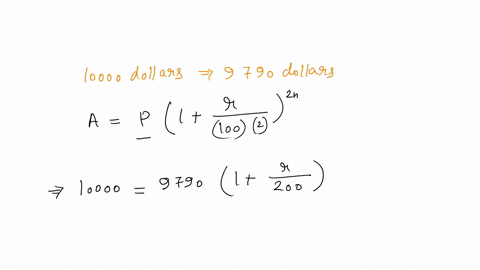 10000 dollars ⇒ 9790 dollars
A = P (1 + r/(100)(2))^2n
⇒ 10000 = 9790 (1 + r/200)